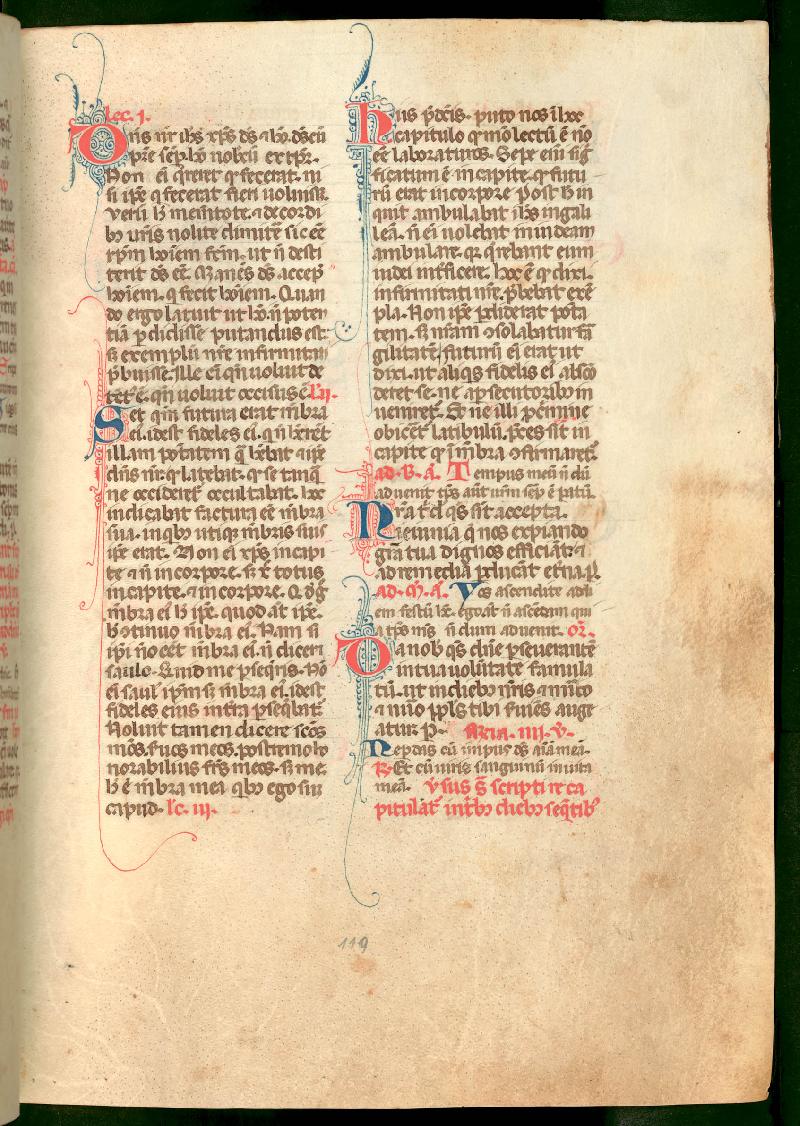 lec. i.
Dn̄s nr̄ ih̄s xp̄s ds̄ ⁊ hō. ds̄ cū
pr̄e sēp. hō nob̄cū ex tp̄r.
Non eī q̄reret q̄ fecerat. ni
si ip̄e q̄ fecerat fieri voluiss.
verū h̄ mēntote. ⁊ de cordi
bꝯ vr̄is nolite dimitt̄e sic eē
xp̄m hoīem fc̄m. ut n̄ desti
terit ds̄ eē. Manēs ds̄ accep
hoīem. q̄ fecit hoīem. Quan
do ergo latuit ut hō. n̄ poten
tiā p̄didisse putandus est:
s; exemplū nr̄e infirmitati
p̄buisse. Ille eī qn̄ voluit de
tētꝯ ē. qn̄ voluit occisus ē. l. ii.
Set qm̄ futura erāt m̄bra
eī. idest fideles eī. qi n̄ hr̄ent
illam potatem q̄ h̄ebat ip̄e
dn̄s nr̄. q̄ latebat. q̄ se tanq̄
ne occideret̄ occultabat. hoc
indicabat factura eē m̄bra
sua. in qbꝯ utiqꝫ m̄bris suis
ip̄e erat. Non eī xp̄s in capi
te ⁊ n̄ in corpore. s; x̄ totus
in capite. ⁊ in corpore. Q̄ g̊
m̄bra eī h̄ ip̄e. quod aūt ip̄e.
n̄ ꝯtinuo m̄bra eī. Nam si
ip̄i nō eēt m̄bra eī. n̄ diceret
saulo. Quid me p̄seqris. Nō
eī saul̄ ip̄m s; m̄bra eī. idest
fideles eius in t̄ra p̄seq̄bat̄.
Noluit tamen dicere sc̄os
m̄os. s̄uos meos. postremo ho
norabilius fr̄s meos. s; me.
h̄ ē m̄bra mea. qbꝯ ego sū
capud. lc. iii.
Hiis p̄dc̄is. puto nos ī hoc
capitulo q̄ mō lectū ē nō
eē laboraturos. Sepe enī siḡ
ficatum ē in capite. q̄ futu
rū erat in corpore. Post h̄ in
quit ambulabat ih̄s in gali
leā. n̄ eī volebat in iudeam
ambulare. q̄ q̄rebant eum
iudei int̄ficere. hoc ē q̄ dixi.
infirmitati nr̄e. p̄bebat exē
pla. Non ip̄e p̄diderat pota
tem. s; nr̄am ꝯsolabatur fra
gilitatē. futurū eī erat ut
dixi. ut aliqs fidelis eī absco
deret se. ne a p̄secutoribꝯ in
veniret̄. Et ne illi p̄ crimine
obiceret̄ latibulū. p̄cessit in
capite q̄ m̄bra ꝯfirmaret̄.
ad. B. a. Tempus meū n̄ dū
advenit tp̄s aūt vr̄m sēp ē patū.
Nr̄a t̄ dn̄e qs̄ sit accepta.
Ieiunia q̄ nos expiando
gr̄a tua dignos efficiāt. ⁊
ad remedia p̄ducāt et̄na. p̄.
ad. m̄. a. Vos ascendite ad di
em festū hūc. ego aūt n̄ ascedam qui
a tp̄s meū n̄ dum advenit. or̄.
Da nob̄ qs̄ dn̄e p̄severantē
in tua volūtate famula
tū. ut in diebꝯ nr̄is ⁊ m̄ito
⁊ nūo ppl̄s tibi s̄viēs auge
atur. P̄. Feria. iiii. v.
Ne p̄das cū impiis ds̄ aīam meā.
R. Et cū viris sanguinū vitam
meā. v̄sus s̄ scripti re ca
pitulāt̄ in t̄bꝯ diebꝯ seq̄tibꝯ
119